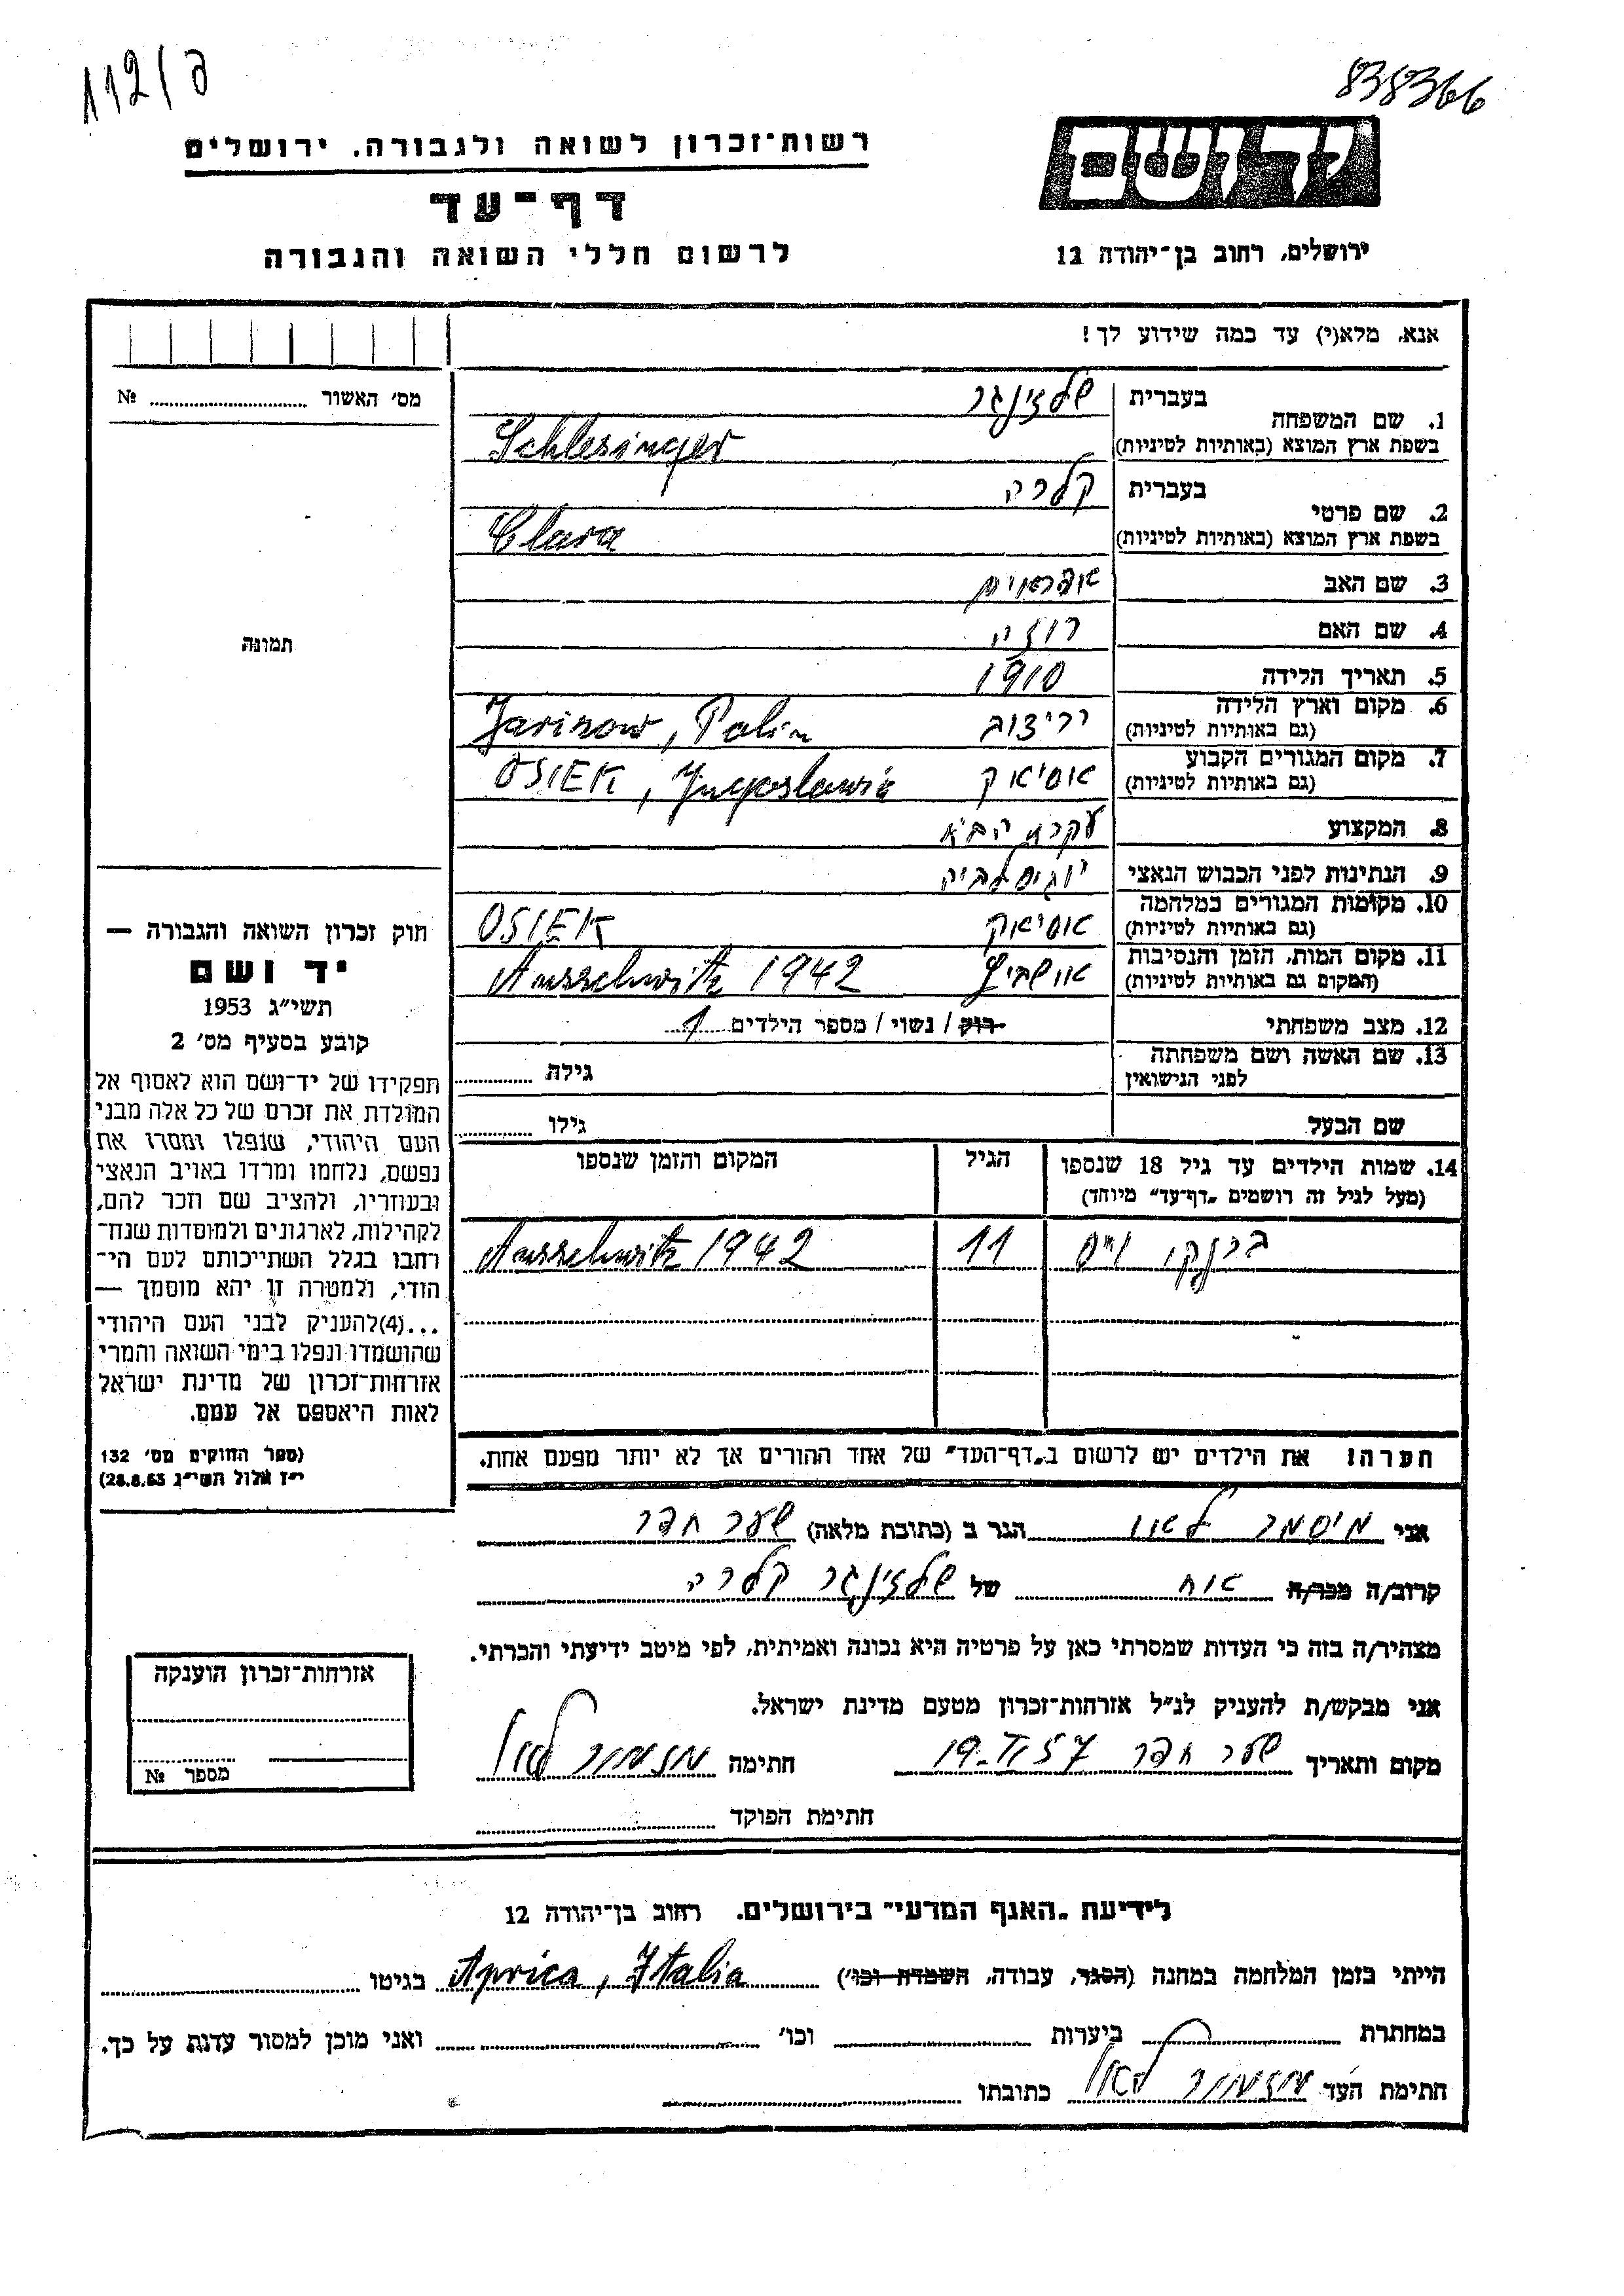 112/ב
838366
רשות־זכרון לשואה ולגבורה. ירושלים
יד ושם
דף־עד
לרשום חללי השואה והגבורה
ירושלים, רחוב בן־יהודה 12
אנא, מלא(י) עד כמה שידוע לך!
מס' האשור № 
1. שם המשפחה
בעברית שלזינגר
בשפת ארץ המוצא (באותיות לטיניות) Schlesinger
2. שם פרטי
בעברית קלרה
בשפת ארץ המוצא (באותיות לטיניות) Clara
3. שם האב אפראים
4. שם האם רוזה
5. תאריך הלידה 1910
6. מקום וארץ הלידה
(גם באותיות לטיניות) יריצוב Jarizow, Polin
7. מקום המגורים הקבוע
(גם באותיות לטיניות) אוסיאק OSIEK, Jugoslawia
8. המקצוע עקרת הבית
9. הנתינות לפני הכבוש הנאצי יוגוסלביה
10. מקומות המגורים במלחמה
(גם באותיות לטיניות) אוסיאק OSIEK
11. מקום המות, הזמן והנסיבות
(המקום גם באותיות לטיניות) אושביץ Ausschwitz 1942
12. מצב משפחתי רוק / נשוי / מספר הילדים 1
13. שם האשה ושם משפחתה
לפני הנישואין גילה
שם הבעל גילו
14. שמות הילדים עד גיל 18 שנספו הגיל המקום והזמן שנספו
(מעל לגיל זה רושמים „דף־עד" מיוחד)
ברנקו וייס 11 Ausschwitz 1942
הערה! את הילדים יש לרשום ב„דף־העד" של אחד ההורים אך לא יותר מפעם אחת.
תמונה
חוק זכרון השואה והגבורה —
יד ושם
תשי״ג 1953
קובע בסעיף מס' 2
תפקידו של יד־ושם הוא לאסוף אל
המולדת את זכרם של כל אלה מבני
העם היהודי, שנפלו ומסרו את
נפשם, נלחמו ומרדו באויב הנאצי
ובעוזריו, ולהציב שם וזכר להם,
לקהילות, לארגונים ולמוסדות שנח־
רחבו בגלל השתייכותם לעם הי־
הודי, ולמטרה זו יהא מוסמך —
...(4)להעניק לבני העם היהודי
שהושמדו ונפלו בימי השואה והמרי
אזרחות־זכרון של מדינת ישראל
לאות היאספם אל עמם.
(ספר החוקים מס' 132
י״ז אלול תשי״ג 28.8.53)
אני מיסמר לאון הגר ב (כתובת מלאה) שער חפר
קרוב/ה מכר/ה אוח של שלזינגר קלרה
מצהיר/ה בזה כי העדות שמסרתי כאן על פרטיה היא נכונה ואמיתית, לפי מיטב ידיעתי והכרתי.
אני מבקש/ת להעניק לנ״ל אזרחות־זכרון מטעם מדינת ישראל.
מקום ותאריך שער חפר חתימה
חתימת הפוקד
אזרחות־זכרון הוענקה
מספר №
לידיעת „האגף המדעי" בירושלים. רחוב בן־יהודה 12
הייתי בזמן המלחמה במחנה (הסגר, עבודה, השמדה וכו') Aprica, Italia בגיטו
במחתרת ביערות וכו' ואני מוכן למסור עדות על כך.
חתימת העד כתובתו